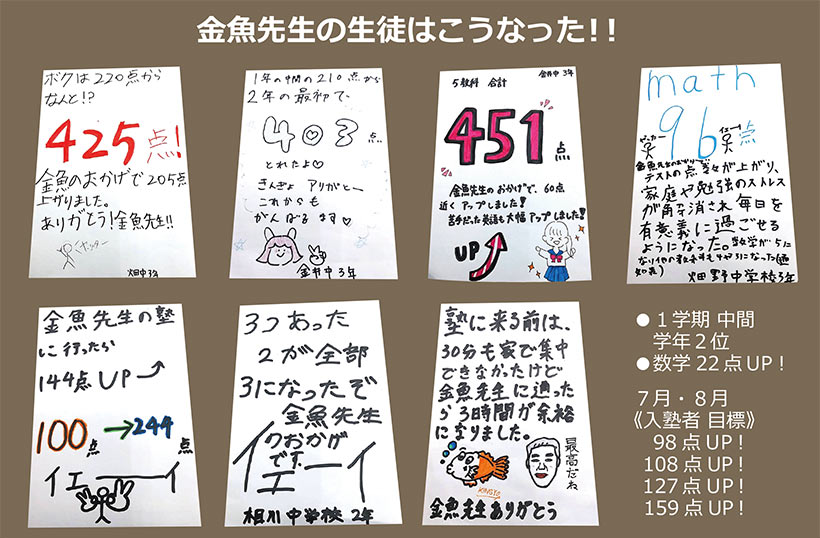 金魚先生の生徒はこうなった!!
ボクは220点から
なんと!?
425点!
金魚のおかげで205点
上がりました。
ありがとう!金魚先生!!
畑中3年
1年の中間の210点から
2年の最初で、
403点
とれたよ♡
きんぎょ アリがとー
これからも
がんばるます♡
金井中3年
金井中3年
5教科 合計
451点
金魚先生のおかげで、60点
近くアップしました!
苦手だった英語も大幅アップしました!
UP
math
96点
金魚先生のおかげで
テストの点数が上がり、
家庭や勉強のストレス
が解消され毎日を
有意義に過ごせる
ようになった。数学が5に
畑野中学校3年
金魚先生の塾
に行ったら
144点UP
100点→244点
イエーーイ
3つあった
2が全部
3になったぞ
金魚先生
のおかげ
です。
イエーイ
相川中学校 2年
塾に来る前は、
30分も家で集中
できなかったけど
金魚先生に通った
ら3時間が余裕
になりました。
最高だね
KINGYO
金魚先生ありがとう
●1学期 中間
学年2位
●数学22点UP!
7月・8月
《入塾者 目標》
98点UP!
108点UP!
127点UP!
159点UP!